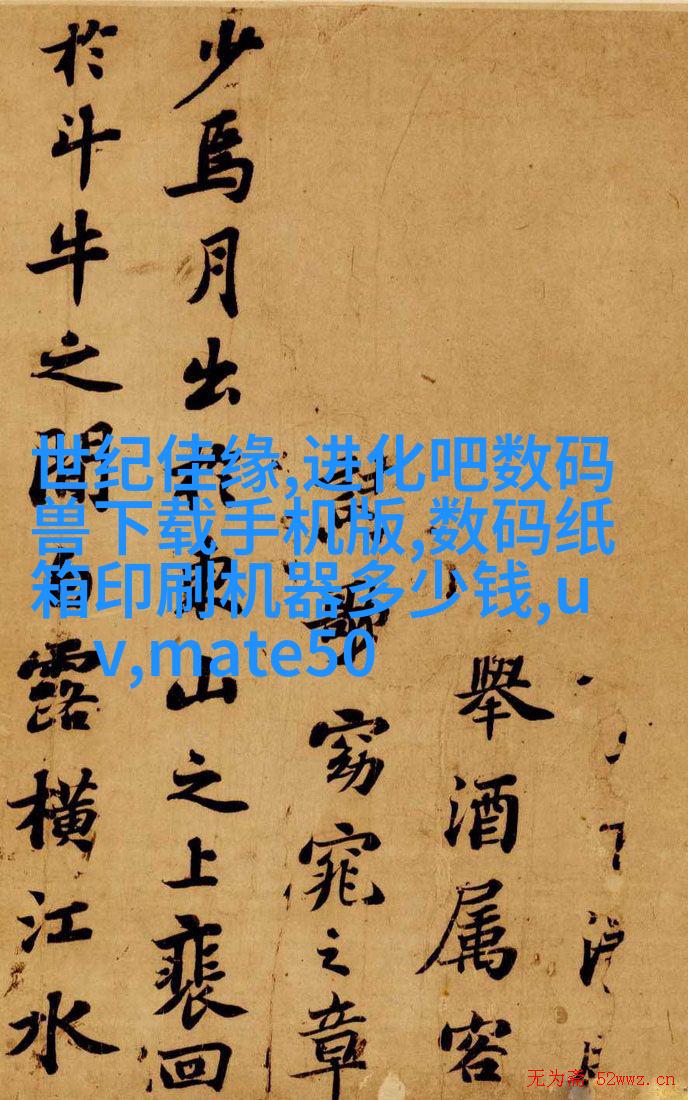 舉酒属客
窈窕之章
少焉月出東山之上裴回
於斗牛之間白露橫江水
世纪佳缘,进化吧数码
兽下载手机版,数码纸
箱印刷机器多少钱,u
v,mate50
无为斋 52wwz.cn